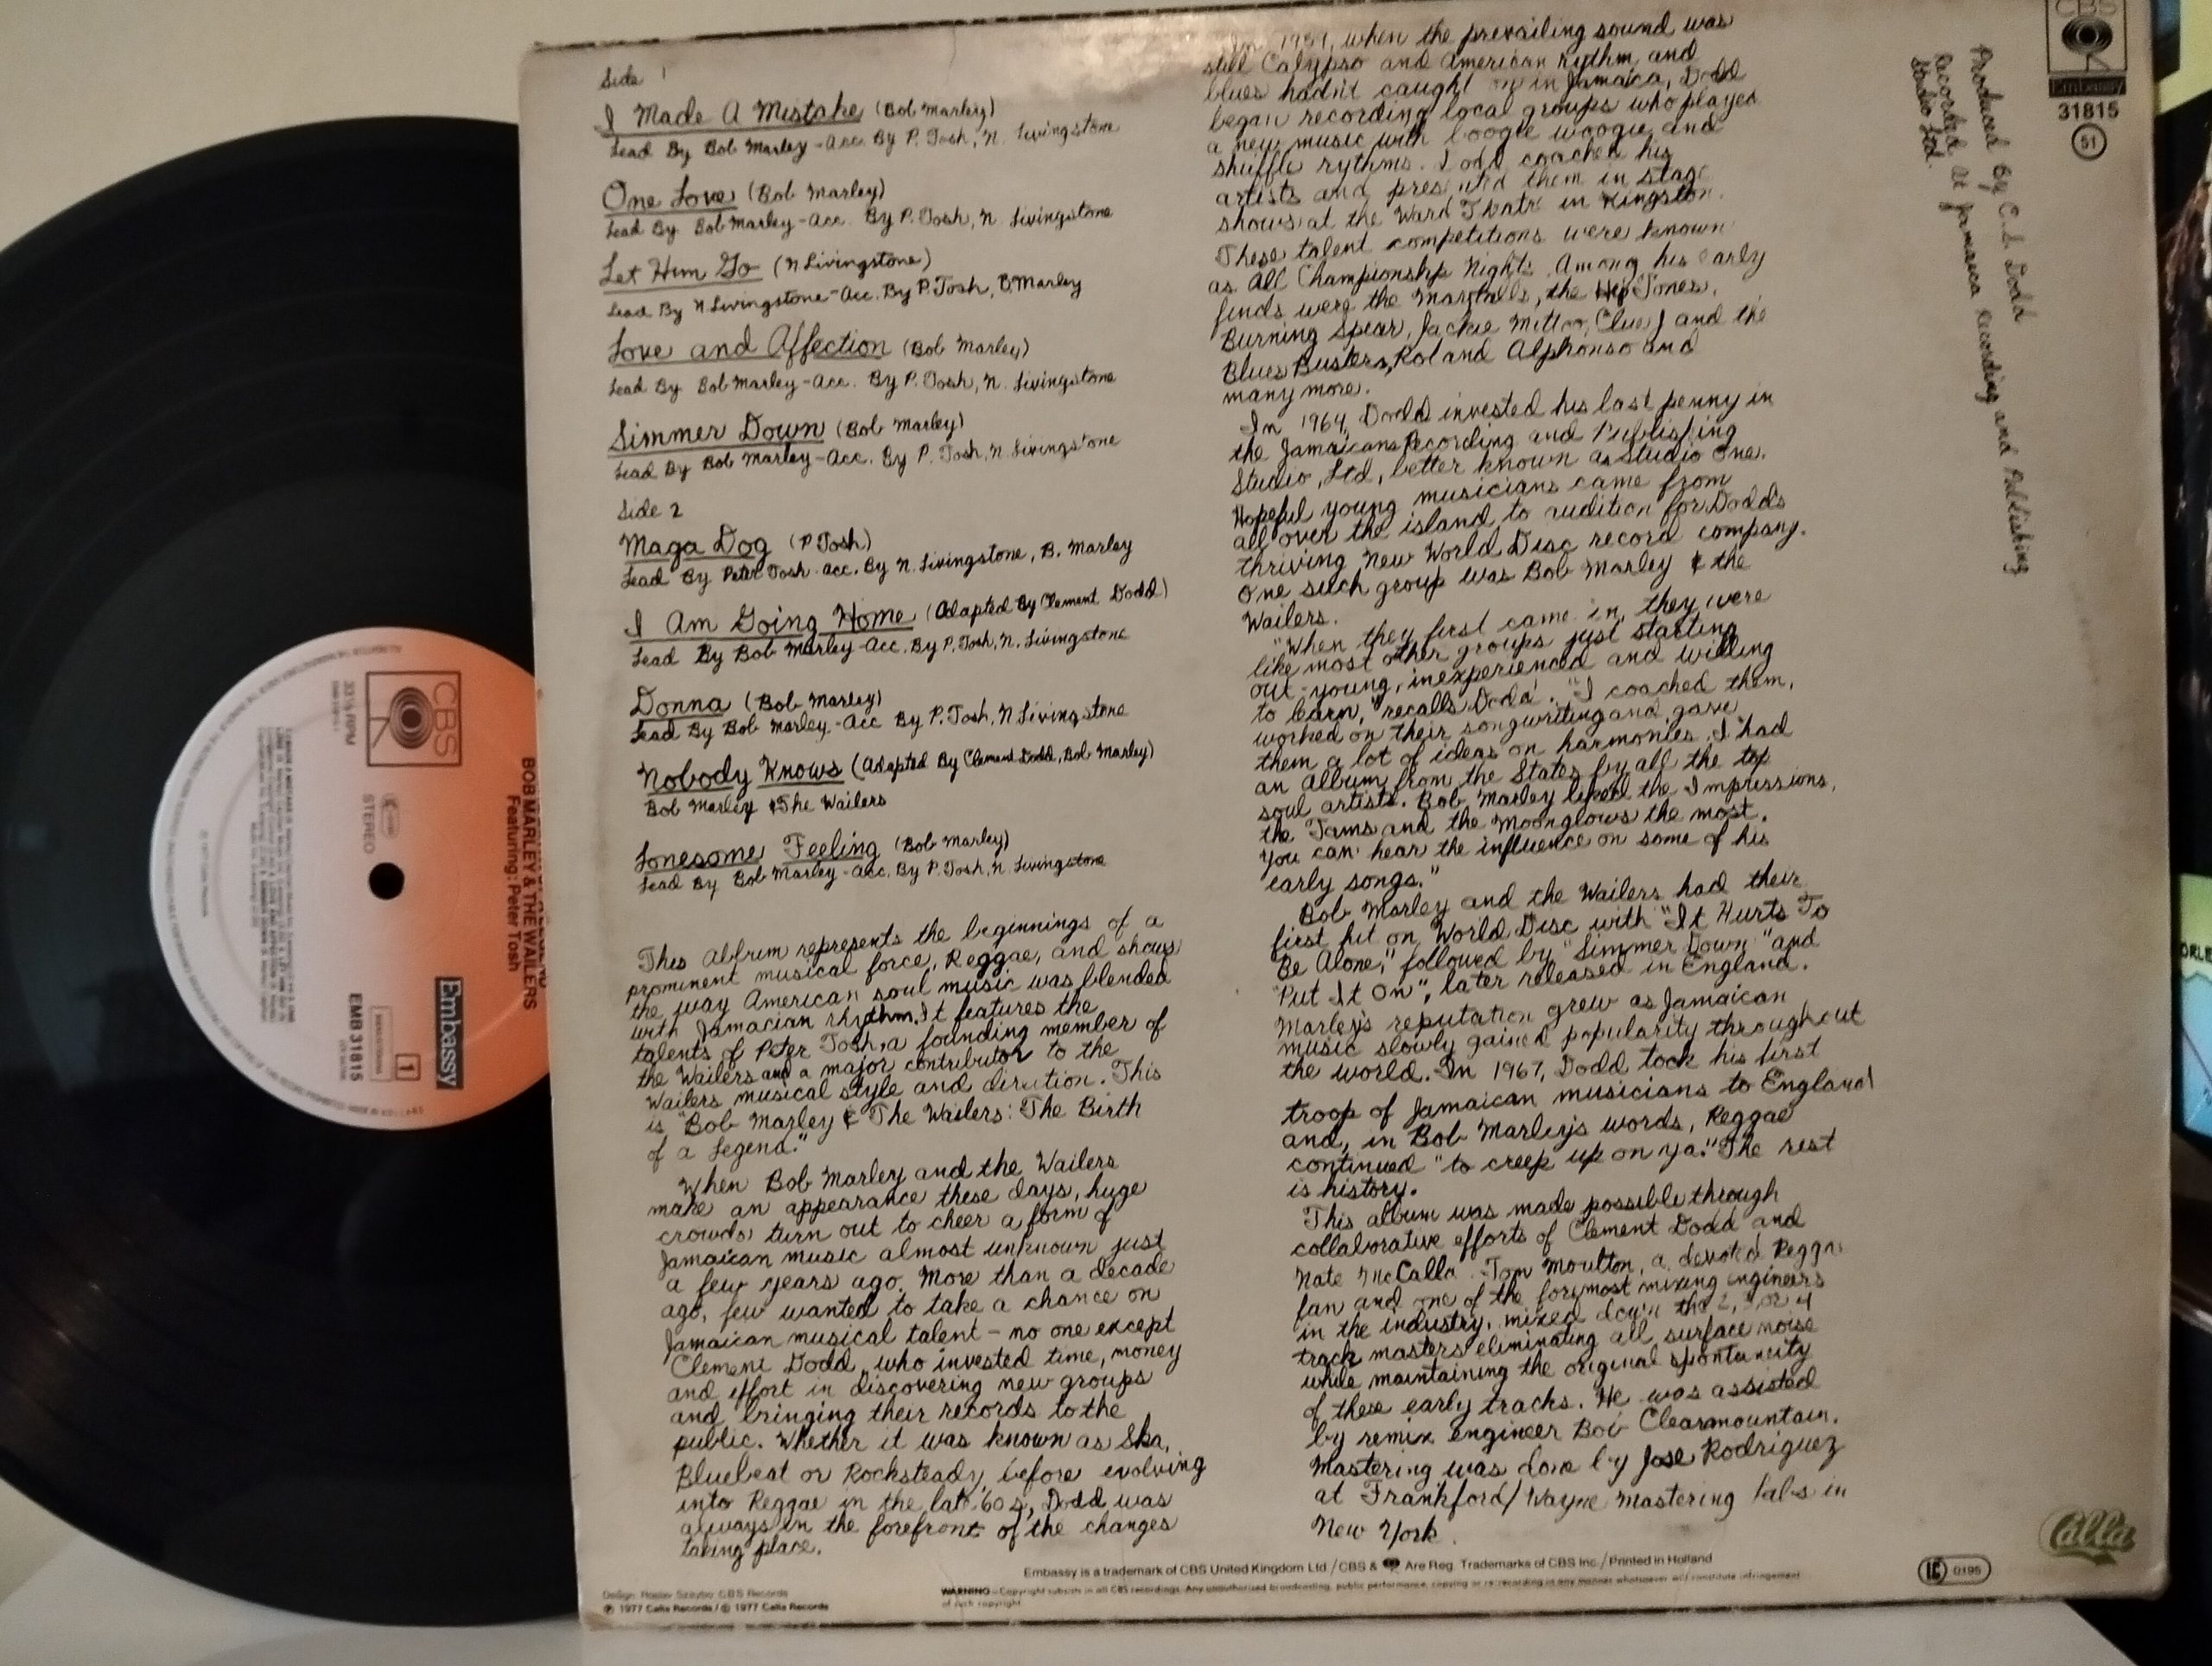 Side 1
I Made A Mistake (Bob Marley)
Lead By Bob Marley-Acc. By P. Tosh, N. Livingstone
One Love (Bob Marley)
Lead By Bob Marley-Acc. By P. Tosh, N. Livingstone
Let Him Go (N Livingstone)
Lead By N. Livingstone-Acc. By P. Tosh, B. Marley
Love and Affection (Bob Marley)
Lead By Bob Marley-Acc. By P. Tosh, N. Livingstone
Simmer Down (Bob Marley)
Lead By Bob Marley-Acc. By P. Tosh, N. Livingstone
Side 2
Maga Dog (P Tosh)
Lead By Peter Tosh-acc. By N. Livingstone, B. Marley
I Am Going Home (Adapted By Clement Dodd)
Lead By Bob Marley-Acc. By P. Tosh, N. Livingstone
Donna (Bob Marley)
Lead By Bob Marley-Acc By P. Tosh, N Livingstone
Nobody Knows (Adapted By Clement Dodd, Bob Marley)
Bob Marley & The Wailers
Lonesome Feeling (Bob Marley)
Lead By Bob Marley-Acc. By P. Tosh, N. Livingstone
This album represents the beginnings of a
prominent musical force, Reggae, and shows
the way American soul music was blended
with Jamacian rhythm. It features the
talents of Peter Tosh, a founding member of
the Wailers and a major contributor to the
Wailers musical style and direction. This
is "Bob Marley & The Wailers: The Birth
of a Legend."
When Bob Marley and the Wailers
make an appearance these days, huge
crowds turn out to cheer a form of
Jamaican music almost unknown just
a few years ago. More than a decade
ago, few wanted to take a chance on
Jamaican musical talent - no one except
Clement Dodd, who invested time, money
and effort in discovering new groups
and bringing their records to the
public. Whether it was known as Ska,
Bluebeat or Rocksteady, before evolving
into Reggae in the late '60s, Dodd was
always in the forefront of the changes
taking place.
In 1951, when the prevailing sound was
still Calypso and American rythm and
blues hadn't caught on in Jamaica, Dodd
began recording local groups who played
a new music with boogie woogie and
shuffle rythms. Dodd coached his
artists and presented them in stage
shows at the Ward Theatre in Kingston.
These talent competitions were known
as All Championship Nights. Among his early
finds were the Maytals, the Hip Tones,
Burning Spear, Jackie Mittoo, Clue J and the
Blues Busters, Roland Alphonso and
many more.
In 1964, Dodd invested his last penny in
the Jamaicans Recording and Publishing
Studio, Ltd, better known as Studio One.
Hopeful young musicians came from
all over the island to audition for Dodd's
thriving New World Disc record company.
One such group was Bob Marley & the
Wailers.
"When they first came in, they were
like most other groups just starting
out-young, inexperienced and willing
to learn," recalls Dodd. "I coached them,
worked on their songwriting and gave
them a lot of ideas on harmonies. I had
an album from the States by all the top
soul artists. Bob Marley liked the Impressions,
the Tams and the Moonglows the most.
You can hear the influence on some of his
early songs."
Bob Marley and the Wailers had their
first hit on World Disc with "It Hurts To
Be Alone," followed by "Simmer Down" and
"Put It On", later released in England.
Marley's reputation grew as Jamaican
music slowly gained popularity throughout
the world. In 1967, Dodd took his first
troop of Jamaican musicians to England
and, in Bob Marley's words, Reggae
continued "to creep up on ya." The rest
is history.
This album was made possible through
collaborative efforts of Clement Dodd and
Nate McCalla. Tom Moulton, a devoted Reggae
fan and one of the forymost mixing engineers
in the industry, mixed down the 2, 3 or 4
track masters eliminating all surface noise
while maintaining the original spontaneity
of these early tracks. He was assisted
by remix engineer Bob Clearmountain.
Mastering was done by Jose Rodriguez
at Frankford/Wayne Mastering labs in
New York.
Produced By C.S. Dodd
Recorded At Jamaica Recording and Publishing
Studio Ltd.
CBS
Embassy
31815
51
Embassy is a trademark of CBS United Kingdom Ltd / CBS & Are Reg. Trademarks of CBS Inc. / Printed in Holland
WARNING-Copyright subsists in all CBS recordings. Any unauthorised broadcasting, public performance, copying or re-recording in any manner whatsoever will constitute infringement
of such copyright
Design: Roslav Szaybo CBS Records
℗ 1977 Calla Records / © 1977 Calla Records
LC 0195
Calla
CBS
33⅓ RPM
STEREO
BOB MARLEY & THE WAILERS
Featuring: Peter Tosh
Embassy
EMB 31815
1